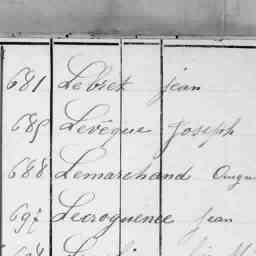 681 Lebret jean
685 Lévêque joseph
688 Lemarchand
692 Lecroguenec jean